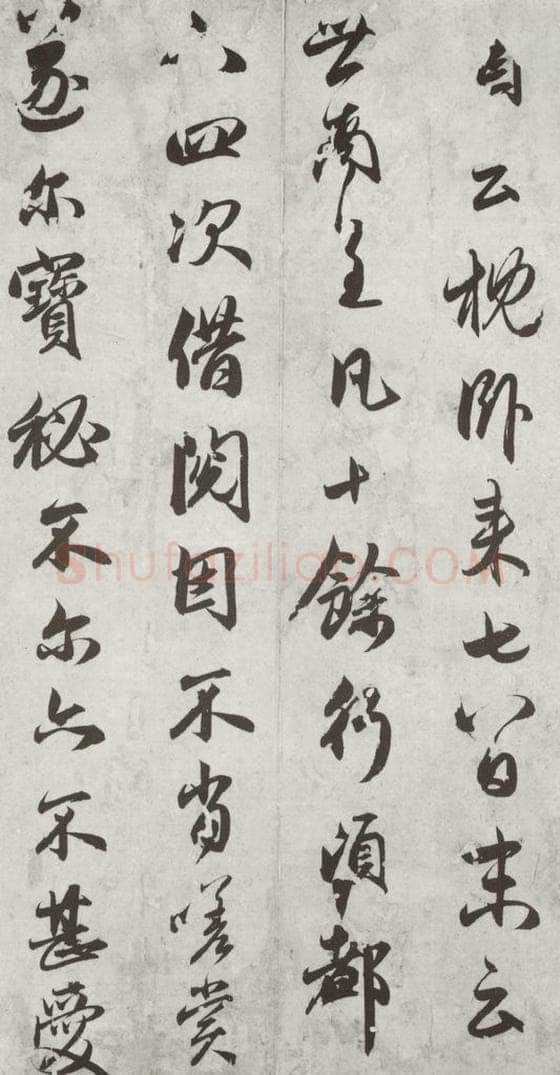 首云枕卧来七八日末云
世南呈凡十餘行頃都
下四次借閱因不肖嗟赏
遂尔寶秘不尔亦不甚愛
Shufaziliao.COM